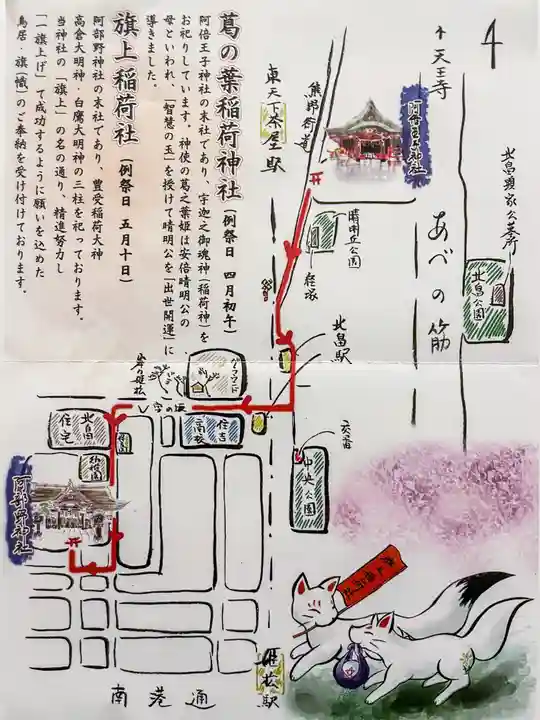 葛の葉稲荷神社（例祭日 四月初午）
阿倍王子神社の末社であり、宇迦之御魂神（稲荷神）を
お祀りしています。神使の葛之葉姫は安倍晴明公の
母といわれ、「智慧の玉」を授けて晴明公を「出世開運」に
導きました。
旗上稲荷社（例祭日 五月十日）
阿部野神社の末社であり、豊受稲荷大神
高倉大明神・白鷹大明神の三柱を祀っております。
当神社の「旗上」の名の通り、精進努力し
「一旗上げ」て成功するように願いを込めた
鳥居・旗（幟）のご奉納を受け付けております。
天王寺
熊野街道
東天下茶屋駅
阿倍王子神社
晴明丘公園
経塚
北畠顕家公墓所
北畠公園
あべの筋
北畠駅
交番
中央公園
グラウンド
住吉
高校
北畠
住宅
幼稚園
阿部野神社
姫松駅
南港通
旗上稲荷社